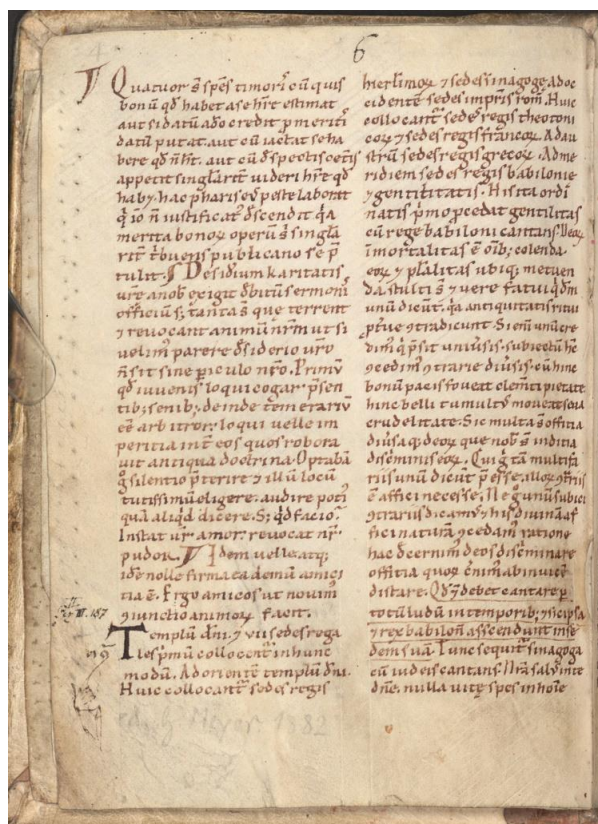 6
Quatuor s̄ sp̄es timoris cū quis
bonū qd̄ habet a se hr̄e estimat
aut si datū a dō credit p meriti
datū putat. aut cū iactat se ha
bere qd̄ n̄ ht̄. aut cū dspectis cet̄is
appetit singlarit̄ videri hr̄e qd̄
hab&. hac phariseꝰ peste laborat
merita bonoꝝ operū s̄ singla
rit̄ t̄buens publicano se p̄
tulit. Desidium karitatis
vr̄e a nob exigit dbitū sermoni
officiū; tanta s̄ que terrent
⁊ revocant animū nr̄m ut si
velim parere dsiderio vr̄o
n̄ sit sine piculo nr̄o. Primū
qd̄ iuvenis loqui cogar p̄sen
tib; senib; deinde tem̄erariū
eē arbitror loqui velle im
peritia int̄ eos quos robora
vit antiqua doctrina. Optabā
g̊ silentio p̄terire ⁊ illū locū
tutissimū eligere. audire potiꝰ
quā aliqd̄ dicere. S; qd̄ facio?
Instat vr̄ amor. revocat nr̄
pudor. Idem velle atq;
idē nolle firma ea demū amici
tia ē. Ergo amicos ut novim
ꝯiunctio animoꝝ facit.
Templū dn̄i. ⁊ vii sedes rega
les p̄mū collocent̄ in hunc
modū. Ad orientē templū dn̄i.
Huic collocant̄ sedes regis
hierl̄imoꝝ ⁊ sedes sinagogę. Ad oc
cidentē sedes imp̄ris rom̄. Huic
collocant̄ sedes regis theotoni
coꝝ ⁊ sedes regis francoꝝ. Ad au
strū sedes regis grecoꝝ. Ad me
ridiem sedes regis babilonie
⁊ gentilitatis. His ita ordi
natis p̄mo p̄cedat gentilitas
cū rege babiloni cantans. Deoꝝ
īmortalitas ē oīb; colenda.
eoꝝ ⁊ pl̄alitas ubiq; metuen
da. Stulti s̄ ⁊ vere fatui qdm̄
unū dicūt. qa antiquitatis ritui
ptve ꝯtradicunt. Si em̄ unū cre
dimꝰ q p̄sit univsis. subiectū hc̄
ꝯcedimꝰ ꝯtrarie divsis. cū hinc
bonū pacis foveat clem̄ti pietate
hinc belli tumultꝰ moveat seva
crudelitate. Sic multa s̄ offitia
divsaq; deoꝝ que nob̄ s̄ inditia
discriminis eoꝝ. Qui g̊ tā multifa
riis unū dicūt p̄esse. alloꝝ ꝯtriis
ē affici necesse. Ne g̊ unū subici
ꝯtrariis dicamꝰ ⁊ his divina af
fici naturā ꝯcedamꝰ ratione
hac decernimꝰ deos discriminare
offitia quoꝝ cernimꝰ ab invicē
distare. Qd̄ ⁊ debet cantare p
totū ludū in temporib; ⁊ sic ipsa
⁊ rex babilon̄ asscendunt in se
dem suā. Tunc sequit̄ sinagoga
cū iudeis cantans. Nr̄a salꝰ in te
dn̄e. nulla vitę spes in hoīe